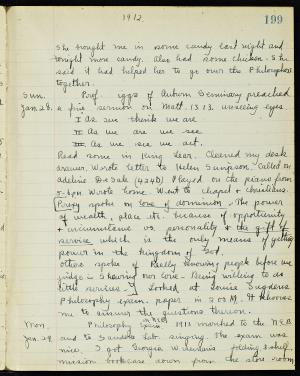 1912. 199
She brought me in some candy last night and
brought more candy. Also had some chicken. She
said it had helped her to go over the Philosophy
together.
Sun. Prof. Riggs of Auburn Seminary preached
Jan. 28. a fine sermon on Matt. 13:13. unseeing eyes
I As we think we are
II As we are we see
III As we see we act.
Read some in King Lear. Cleaned my desk
drawer. Wrote letter to Helen Simpson. Called on
Adeline DeSale (42d). Played on the piano from
5-6pm Wrote home. Went to chapel + Christians.
Prexy spoke on love of dominion. The power
of wealth, place etc. because of opportunity
+ circumstance vs. personality + the gift of
service which is the only means of getting
power in the kingdom of God.
Others spoke of Really knowing people before we
judge + showing our love. Being willing to do
little services. I looked at Louise
Philosophy exam. paper in 301. It
me to answer the questions therein.
Mon. Philosophy Exam 1913 marched to the
Jan. 29 and to sing. The exam was
nice. I got Georgia Williams folding
mission bookcase down from the store room